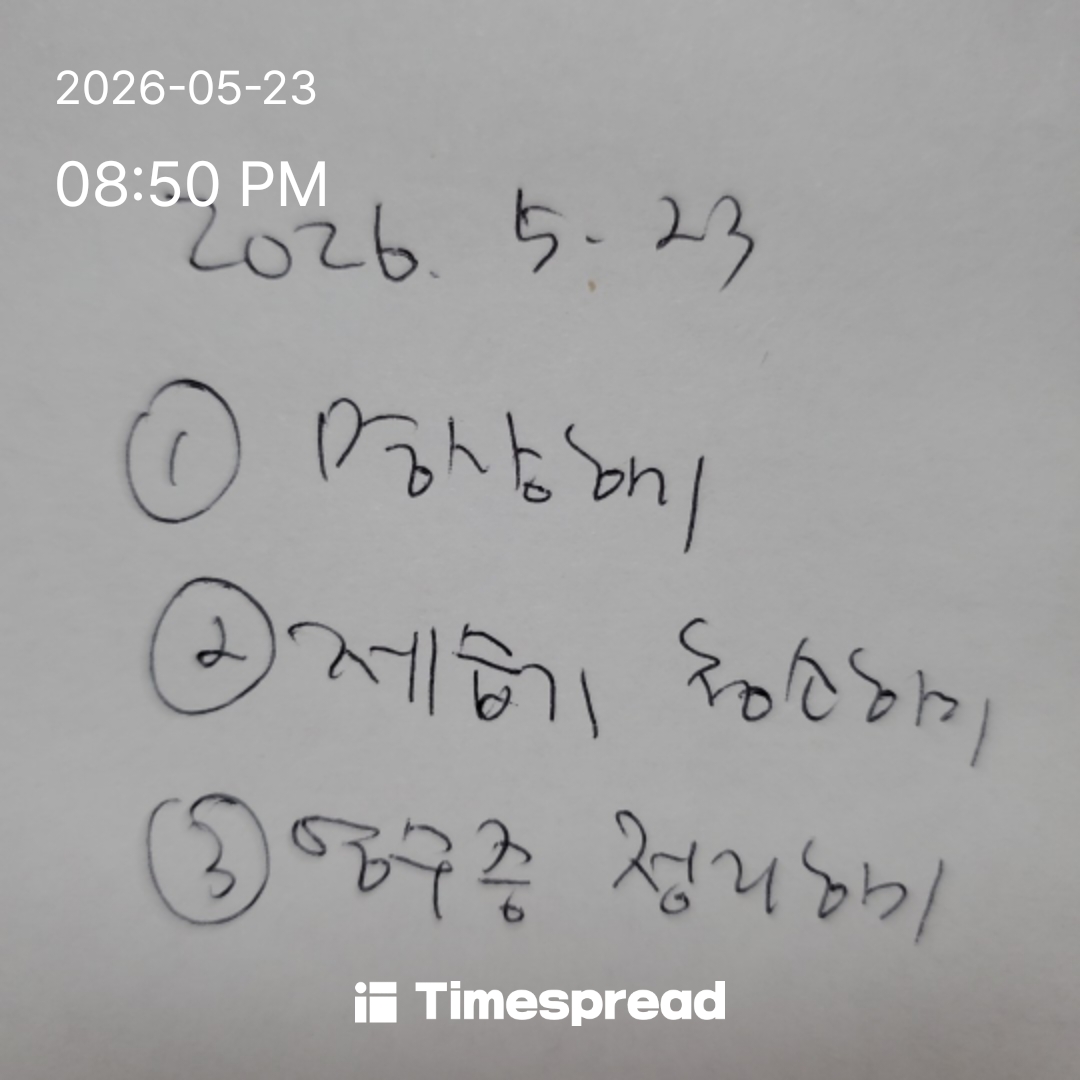 2026-05-23
08:50 PM
2026. 5. 23
① 명상하기
② 제습기 청소하기
③ 영수증 정리하기
Timespread